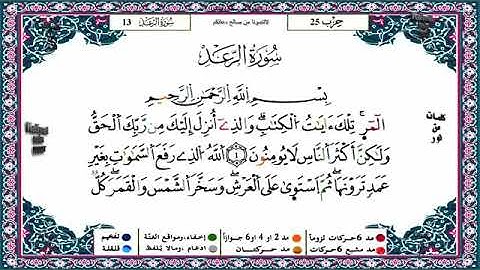 سُورَةُ الرَّعْدِ 13
لاتنسونا من صالح دعائكم
حِزْب 25
سُورَةُ الرَّعْدِ
بِسْمِ اللَّهِ الرَّحْمَٰنِ الرَّحِيمِ
الٓمٓر تِلْكَ ءَايَٰتُ الْكِتَٰبِ وَالَّذِے أُنزِلَ إِلَيْكَ مِن رَّبِّكَ الْحَقُّ
وَلَٰكِنَّ أَكْثَرَ النَّاسِ لَا يُومِنُونَ ١ اللَّهُ الَّذِے رَفَعَ السَّمَٰوَٰتِ بِغَيْرِ
عَمَدٖ تَرَوْنَهَا ثُمَّ اَسْتَوَىٰ عَلَى الْعَرْشِ وَسَخَّرَ الشَّمْسَ وَالْقَمَرَ كُلّٞ
كلمات
من
نور
مد 6 حركات لزوماً مد 2 او 4 او 6 جوازاً إخفاء، ومواقع الغنّة تفخيم
مد مشبع 6 حركات مد حركتان ادغام، ومالا يُلفظ قلقلة